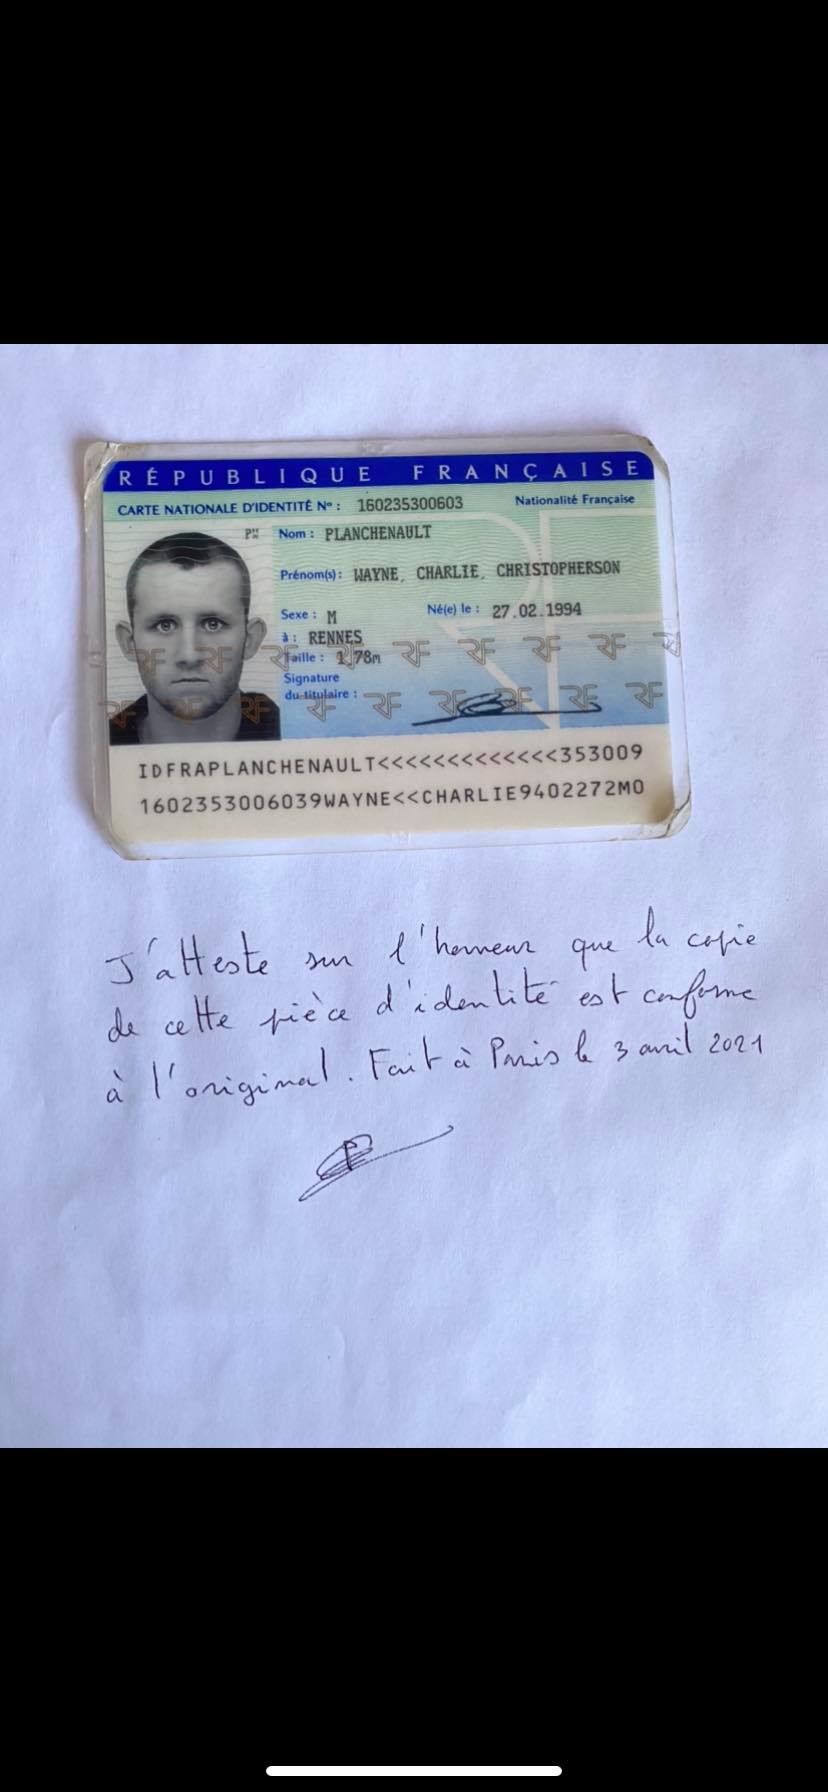 RÉPUBLIQUE FRANÇAISE
CARTE NATIONALE D'IDENTITÉ Nº : 160235300603 Nationalité Française
Nom : PLANCHENAULT
Prénom(s) : WAYNE, CHARLIE, CHRISTOPHERSON
Sexe : M Né(e) le : 27.02.1994
à : RENNES
Taille : 1,78m
Signature
du titulaire :
RF RF RF RF RF RF RF RF RF
RF RF RF RF RF RF RF RF RF
IDFRAPLANCHENAULT<<<<<<<<<<<<<353009
1602353006039WAYNE<<CHARLIE9402272M0
J'atteste sur l'honneur que la copie
de cette pièce d'identité est conforme
à l'original. Fait à Paris le 3 avril 2021